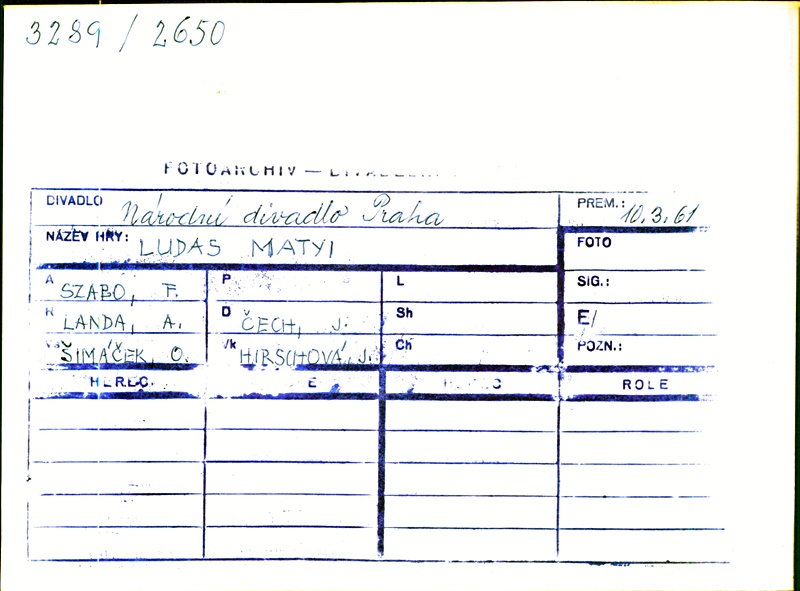 3289 / 2650
FOTOARCHIV —
DIVADLO Národní divadlo Praha PREM.: 10.3.61
NÁZEV HRY: LUDAS MATYI FOTO
A SZABO, F. P L SIG.:
R LANDA, A. D ČECH, J. Sh E/
ŠIMÁČEK, O. Vk HIRSCHOVÁ, J. Ch POZN.:
HEREC ROLE